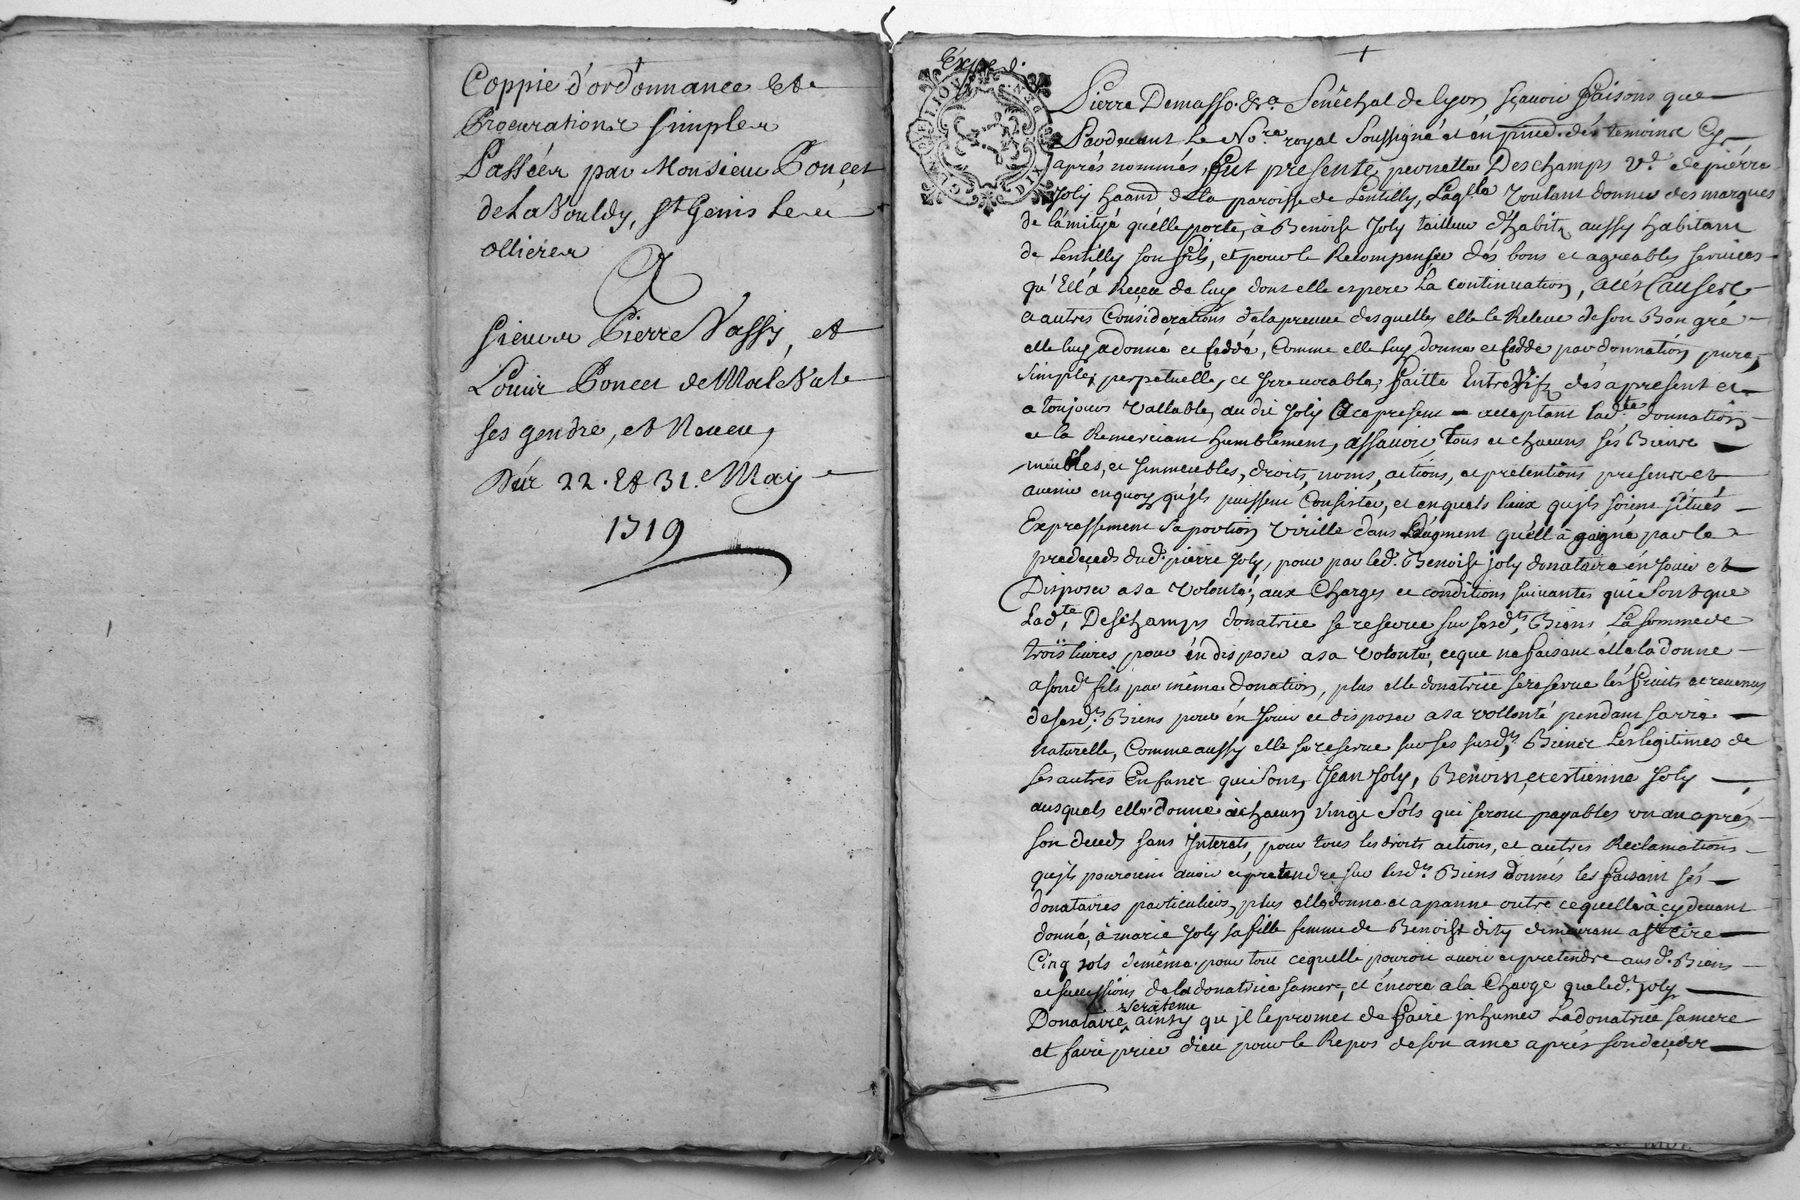 Coppie d'ordonnance et
Procurations simples
Passées par Monsieur Ponçet
de La Vouldy, St Genis Les
ollieres
A
sieurs Pierre Vassy, et
Louis Poncet de Mal Val
ses gendre, et Neveu,
Des 22. et 31. May
1719
Exped.
GEN. DE LION
DIX DEN.
Pierre Demasso &ra Senêchal de lyon sçavoir faisons que
Pardevant Le No.re royal soussigné et én pnce. dés temoins Cy
aprés nommés, fut presente pernette Deschamps v.e de pierre
Joly hant de la paroisse de Lentilly, Laq.lle voulant donner des marques
de l'amitýé qu'élle porte, à Benoist Joly tailleur d'habits aussy habitant
de Lentilly son fils, et pour le Recompenser dés bons et agreables services
qu'Ell'a Reçeu de luy dont elle espere La continuation, a cés Causes et
a autres Considerations de la preuve desquelles elle le Releve de son Bon gré
elle luy a donné et cedde, comme elle luy donne et cedde par donnation pure,
simple, perpetuelle, et Irrevocable, faitte Entre Vifs dés apresent et
a toujours vallable, au dit Joly Ice present acceptant lad.te donnation
et la Remerciant humblement, assavoir, tous et chacuns sés Biens
meubles, et Immeubles, droits, noms, actions, et pretentions presents et
avenir en quoy qu'jls puissent Consister, et en quels lieux qu'jls soient situés
Expressement sa portion virille dans L'augment qu'éll'à gagné par le
predeçeds dud. pierre Joly, pour par led. Benoist joly donataire én Jouir et
Disposer a sa volonté, aux Charges et conditions suivantes qui sont que
Lad.te Deschamps donatrice se reserve sur sesd.ts Biens La somme de
trois livres pour én disposer a sa volonté, ce que ne faisant élle la donne
a sond.t fils par même donation, plus elle donatrice se reserve lés fruits et revenus
de sesd.ts Biens pour én Jouir et disposer a sa vollonté pendant sa vie
naturelle, Comme aussy elle se reserve sur ses susd.ts Biens Les legitimes de
ses autres Enfants qui sont, Jean Joly, Benoist, et estienne Joly
ausquels elle donne à chacun vingt sols qui seront payables un an aprés
son deceds sans Interets, pour tous les droits actions, et autres Reclamations
qu'jls pouroient avoir et pretendre sur lesd.ts Biens donnés les faisant sés
donataires particuliers, plus elle donne et apanne outre ce quelle à cy devant
donné, à marie Joly sa fille femme de Benoist dity demeurant a
Cinq sols demême pour tout ce quelle pouroit avoir et pretendre aus d. Biens
et successions de la donatrice sa mere, et éncore a la Charge que led.t Joly
Donataire sera tenu ainsy qu jl le promet de faire jnhumer La donatrice sa mere
et faire prier dieu pour le Repos de son ame aprés son deçeds